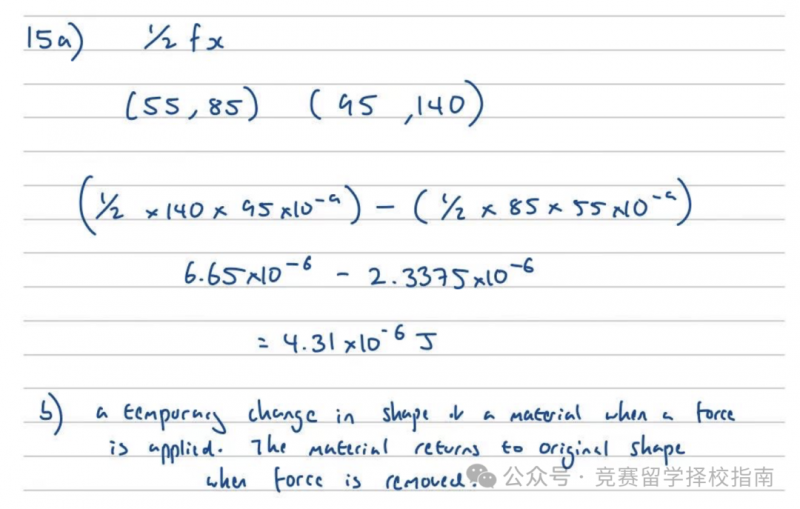 15a) 1/2 fx
(55, 85) (95, 140)
(1/2 × 140 × 95×10⁻⁹) − (1/2 × 85 × 55×10⁻⁹)
6.65×10⁻⁶ − 2.3375×10⁻⁶
= 4.31×10⁻⁶ J
b) a temporary change in shape of a material when a force
is applied. The material returns to original shape
when force is removed.
公众号·竞赛留学择校指南